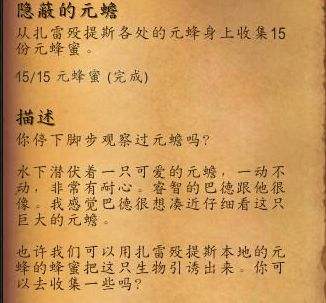 隐蔽的元蟾
从扎雷殁提斯各处的元蜂身上收集15
份元蜂蜜。
15/15 元蜂蜜 (完成)
描述
你停下脚步观察过元蟾吗?
水下潜伏着一只可爱的元蟾,一动不
动,非常有耐心。睿智的巴德跟他很
像。我感觉巴德很想凑近仔细看这只
巨大的元蟾。
也许我们可以用扎雷殁提斯本地的元
蜂的蜂蜜把这只生物引诱出来。你可
以去收集一些吗?